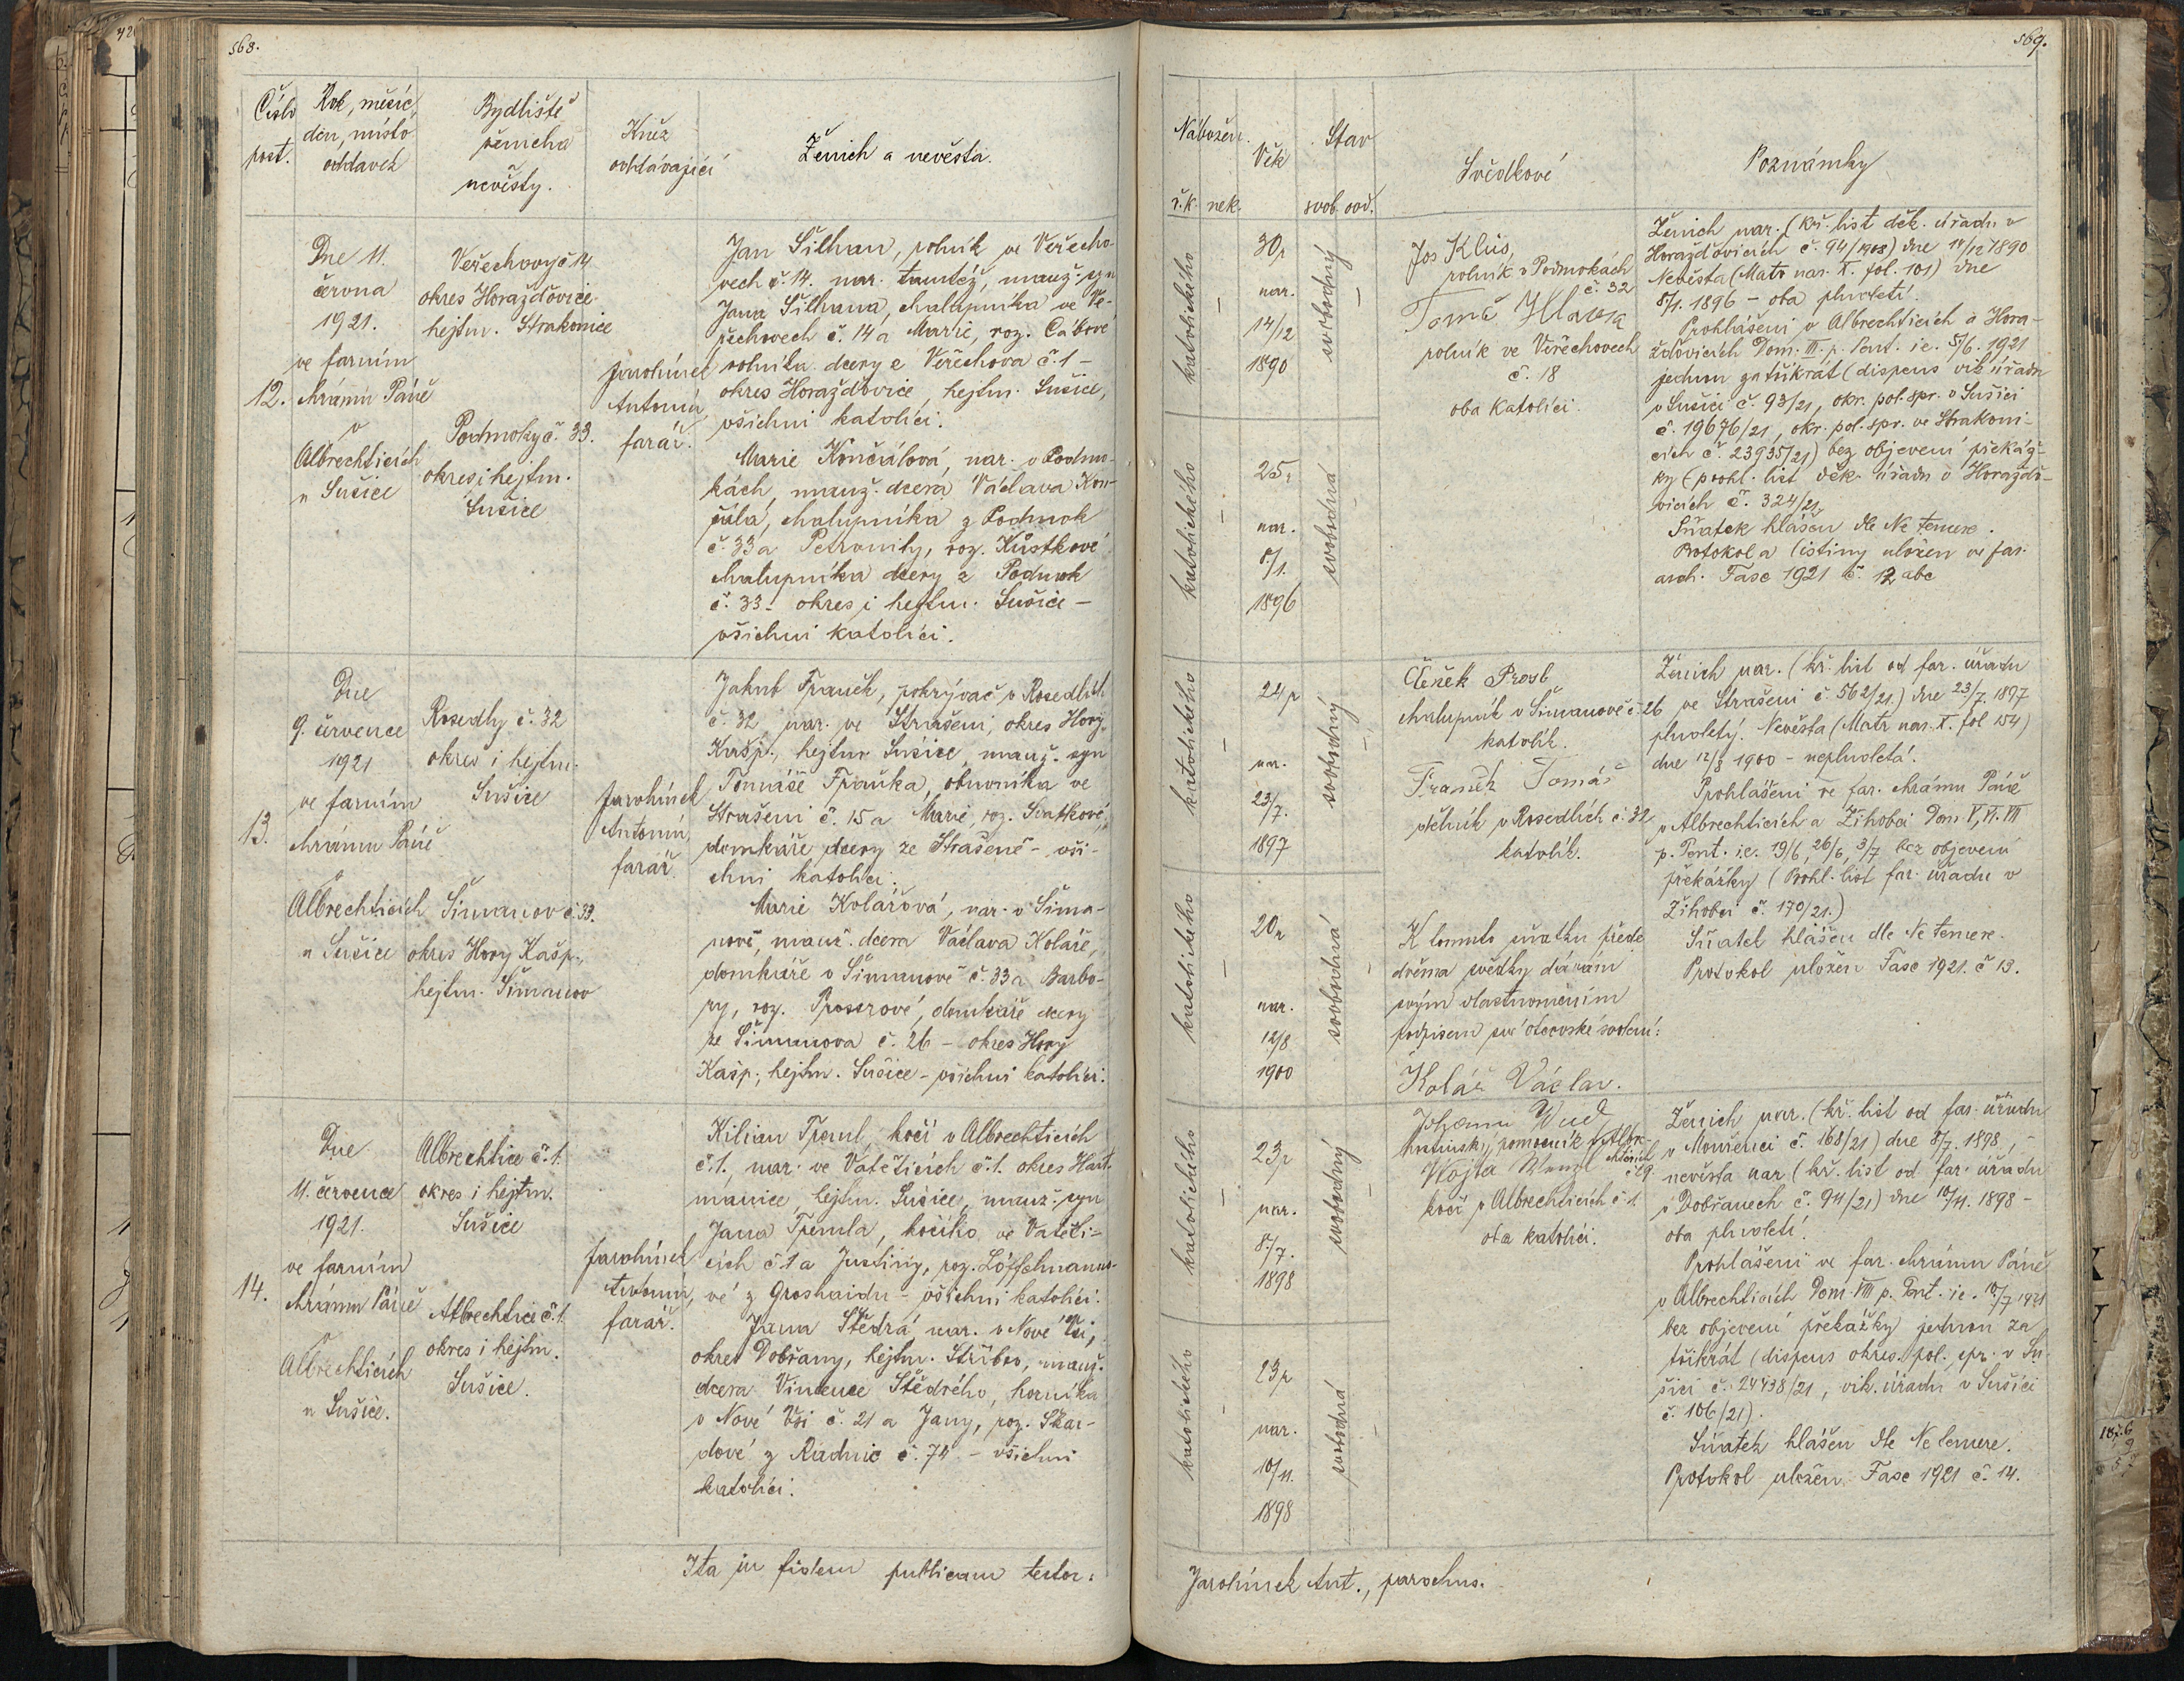 568.
Číslo
post.
Rok, měsíc,
den, místo
oddavek
Bydliště
ženicha
nevěsty.
Kněz
oddávající
Ženich a nevěsta.
12.
Dne 11.
června
1921.
ve farním
chrámu Páně
v
Albrechticích
u Sušice
Veřechovy č 14
okres Horažďovice
hejtm. Strakonice
Podmoky č. 33.
okres i hejtm.
Sušice
Jarolímek
Antonín,
farář.
Jan Šilhan, rolník ve Veřecho-
vech č. 14. nar. tamtéž, manž. syn
Jana Šilhana, chalupníka ve Ve-
řechovech č. 14 a Marie, roz. Cábové
rolníka dcery z Veřechova č. 1 –
okres Horažďovice, hejtm. Sušice,
všichni katolíci.
Marie Končálová, nar. v Podmo-
kách, manž. dcera Václava Kon-
čála, chalupníka z Podmok
č. 33 a Petronily, roz. Kůstkové
chalupníka dcery z Podmok
č. 33 – okres i hejtm. Sušice –
všichni katolíci.
13.
Dne
9. července
1921
ve farním
chrámu Páně
v
Albrechticích
u Sušice
Rosedly č. 32
okres i hejtm.
Sušice
Šimanov č. 33.
okres Hory Kašp.,
hejtm. Šimanov
Jarolímek
Antonín,
farář.
Jakub Franěk, pokrývač v Rosedlích
č. 32, nar. ve Strašeni, okres Hory
Kašp., hejtm. Sušice, manž. syn
Tomáše Fraňka, obuvníka ve
Strašeni č. 15 a Marie, roz. Svatkové,
domkáře dcery ze Strašeně – vši-
chni katolíci.
Marie Kolářová, nar. v Šima-
nově, manž. dcera Václava Koláře,
domkáře v Šimanově č. 33 a Barbo-
ry, roz. , domkáře dcery
ze Šimanova č. 26 – okres Hory
Kašp., hejtm. Sušice – všichni katolíci.
14.
Dne
11. července
1921.
ve farním
chrámu Páně
v
Albrechticích
u Sušice.
Albrechtice č. 1.
okres i hejtm.
Sušice
Albrechtice č. 1.
okres i hejtm.
Sušice.
Jarolímek
Antonín,
farář.
Kilian Treml, kočí v Albrechticích
č. 1., nar. ve Vatěticích č. 1. okres Hart-
manice, hejtm. Sušice, manž. syn
Jana Tremla, kočího ve Vatěti-
cích č 1 a Justiny, roz. Löffelmanno-
vé z Groshaidu – všichni katolíci.
Jana Štědrá, nar. v Nové Vsi,
okres Dobřany, hejtm. Stříbro, manž.
dcera Vincence Štědrého, horníka
v Nové Vsi č. 21 a Jany, roz. Škar-
dové z Radnic č. 74 – všichni
katolíci.
Ita in fidem publicam testor:
569.
Nábožen.
ř. k. nek.
Věk
Stav
svob. ovd.
Svědkové
Poznámky
katolického
–
30 r
nar.
14/12
1890
svobodný
–
katolického
–
25 r
nar.
8/1.
1896
svobodná
–
Jos Klus,
rolník v Podmokách
č. 32
Tomáš Hlavka
rolník ve Veřechovech
č. 18
oba katolíci.
Ženich nar. (kř. list děk. úřadu v
Horažďovicích č. 94/1908) dne 14/12 1890
Nevěsta (Matr. nar. X. fol. 101) dne
8/1. 1896 – oba plnoletí.
Prohlášeni v Albrechticích a Hora-
žďovicích Dom. III. p. Pent. i.e. 5/6. 1921
jednou za třikrát (dispens vik. úřadu
v Sušici č. 93/21, okr. pol. spr. v Sušici
č. 19676/21, okr. pol. spr. ve Strakoni-
cích č. 23935/21) bez objevení překáž-
ky (prohl. list děk. úřadu v Horažďo-
vicích č. 324/21.
Sňatek hlášen dle Ne temere.
Protokol a listiny uložen ve far.
arch. Fasc 1921 č. 12 abc
katolického
–
24 r
nar.
23/7.
1897
svobodný
–
katolického
–
20 r
nar.
12/8
1900
svobodná
–
Čeněk
chalupník v Šimanově č. 26
katolík.
Franěk Tomáš
v Rosedlích č. 32
katolík.
K tomuto sňatku přede
dvěma svědky dávám
svým vlastnoručním
podpisem své otcovské svolení:
Kolář Václav.
Ženich nar. (kř. list od far. úřadu
ve Strašeni č. 562/21.) dne 23/7 1897
plnoletý. Nevěsta (Matr. nar. X. fol 154)
dne 12/8 1900 – neplnoletá.
Prohlášeni ve far. chrámu Páně
v Albrechticích a Žihobci Dom V, VI. VII
p. Pent. i.e. 19/6, 26/6, 3/7 bez objevení
překážky (Prohl. list far. úřadu v
Žihobci č. 170/21.)
Sňatek hlášen dle Ne temere.
Protokol uložen Fasc 1921. č 13.
katolického
–
23 r
nar.
8/7.
1898
svobodný
–
katolického
–
23 r
nar.
10/11.
1898
svobodná
–
Johann
pomocník v Albre-
chticích
č. 9.
Vojta
kočí v Albrechticích č 1.
oba katolíci.
Ženich nar. (kř. list od far. úřadu
v Mouřenci č. 168/21) dne 8/7. 1898, –
nevěsta nar (kř. list od far. úřadu
v Dobřanech č. 94/21) dne 10/11. 1898 –
oba plnoletí.
Prohlášeni ve far. chrámu Páně
v Albrechticích Dom. VIII p. Pent. i.e. 10/7 1921
bez objevení překážky jednou za
třikrát (dispens okres. pol. spr. v Su-
šici č. 24438/21, vik. úřadu v Sušici
č. 106/21).
Sňatek hlášen dle Ne temere.
Protokol uložen Fasc 1921 č. 14.
Jarolímek Ant., parochus.